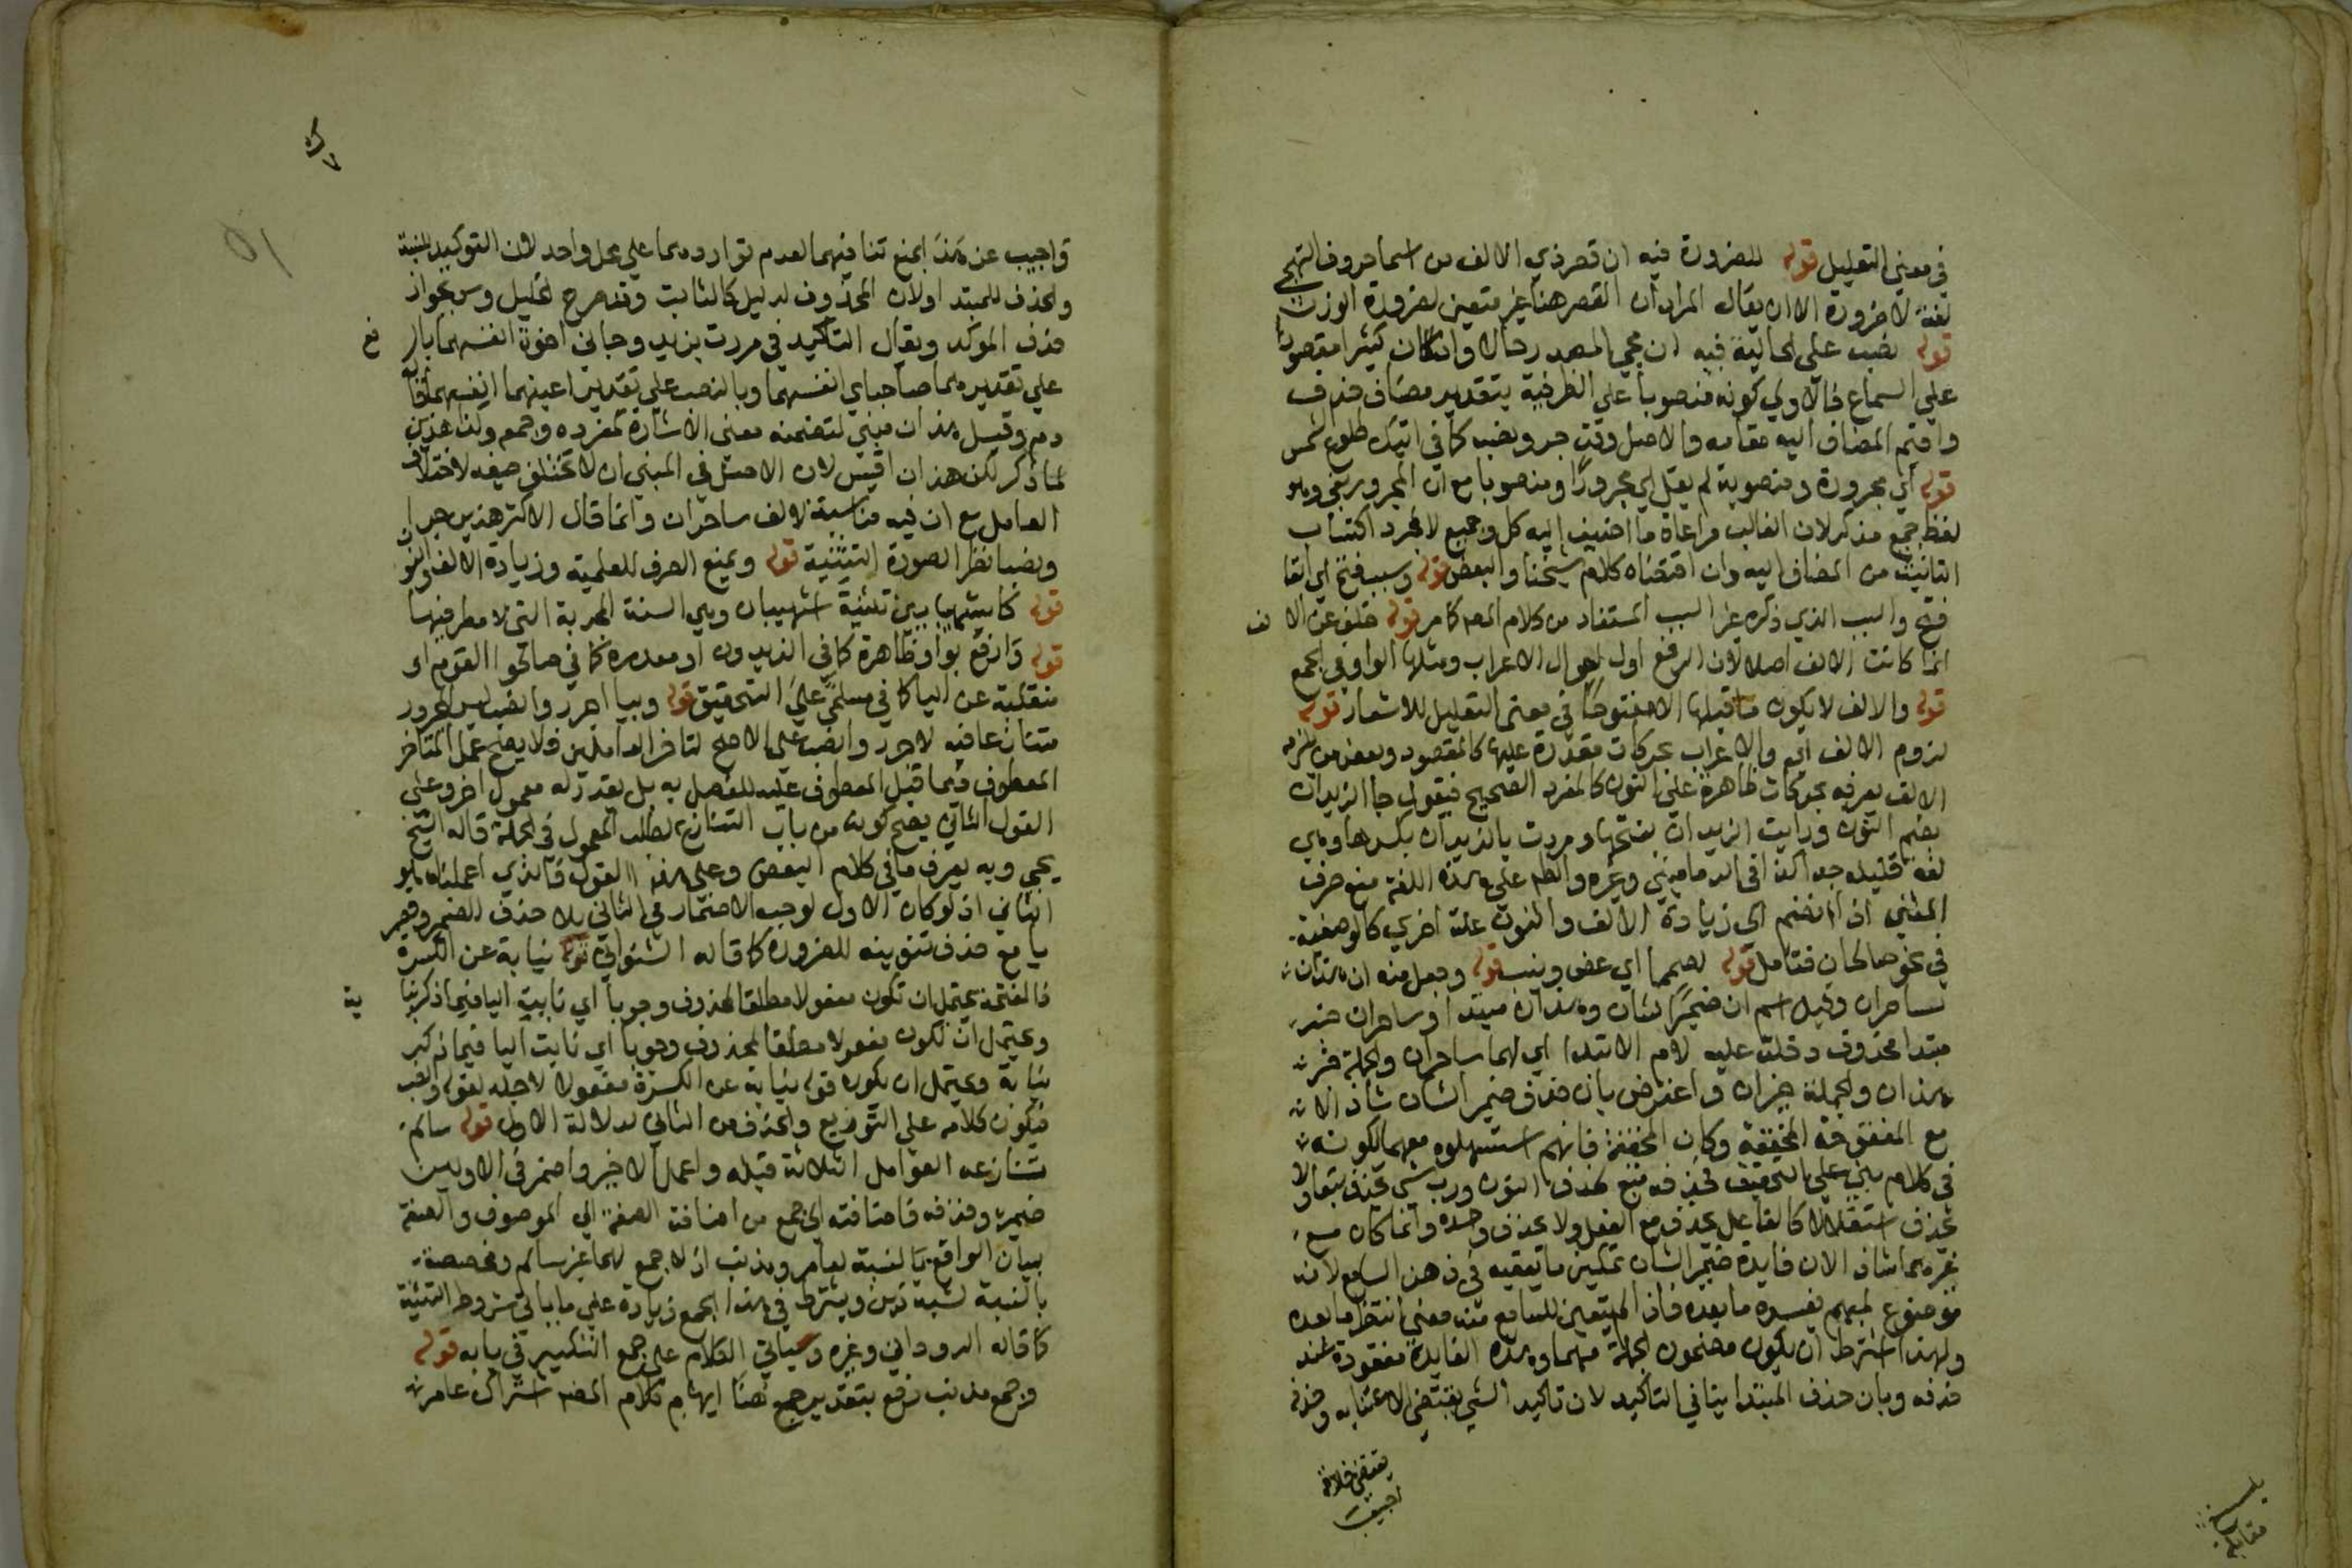 في معنى التعليل قوله للضرورة فيه ان قصر ذي الالف من اسما حروف التهجي
لغة لا ضرورة الا ان يقال المراد ان القصر هنا غير متعين لضرورة الوزن
قوله نصب على الحالية فيه ان مجي المصدر حالا وان كان كثيرا مقصور
على السماع فالاولى كونه منصوبا على الظرفية بتقدير مضاف حذف
واقيم المضاف اليه مقامه والاصل وقت جر ونصب كما في اتيتك طلوع الشمس
قوله اي مجرورة ومنصوبة لم يقل اي مجرورا ومنصوبا مع ان المجرور بقي وهو
لفظ جميع مذكر لان الغالب مراعاة ما اضيف اليه كل وجميع لا مجرد اكتساب
التانيث من المضاف اليه وان اقتضاه كلام شيخنا والبعض قوله وسبب فتح اي ابقا
فتح والسبب الذي ذكره غير السبب المستفاد من كلام المص كما مر قوله خلف عن الالف
انما كانت الالف اصلا لان الرفع اول احوال الاعراب ومثلها الواو في الجمع
قوله والالف لا يكون ما قبلها الا مفتوحا في معنى التعليل للاشعار قوله
لزوم الالف اي والاعراب بحركات مقدرة عليها كالمقصور وبعض من يلزمه
الالف يعربه بحركات ظاهرة على النون كالمفرد الصحيح فيقول جا الزيدان
بضم النون ورايت الزيدان بفتحها ومررت بالزيدان بكسرها وهي
لغة قليلة جدا كذا في الدماميني وغيره والظم على هذه اللغة منع صرف
المثنى اذا انضم الى زيادة الالف والنون علة اخرى كالوصفية
في نحو صالحان فتامل قوله لصمما اي عض ونيب قوله وجعل منه ان هذان
لساحران وقيل اسم ان ضمير الشان وهذان مبتدا وساحران خبر
مبتدا محذوف دخلت عليه لام الابتدا اي لهما ساحران والجملة خبر
هذان والجملة خبر ان واعترض بان حذف ضمير الشان شاذ الا
مع المفتوحة المخففة وكان المخففة فانهم استسهلوه معهما لكونه
في كلام بني على التخفيف فحذفه تبع لحذف النون ورب شي يحذف تبعا ولا
يحذف استقلالا كالفاعل يحذف مع الفعل ولا يحذف وحده وانما كان مع
غيرهما شاذا لان فايدة ضمير الشان تمكين ما يعقبه في ذهن السامع لانه
موضوع لمبهم يفسره ما بعده فاذا لم يتعين للسامع منه معنى انتظر ما بعده
ولهذا اشترط ان يكون مضمون الجملة مهما وهذه الفايدة مفقودة عند
حذفه وبان حذف المبتدا ينافي التاكيد لان تاكيد الشي يقتضي الاعتنا به وحذفه
يقتضي خلافه
اجيب
قوله
واجيب عن هذا بمنع تنافيهما لعدم تواردهما على محل واحد لان التوكيد للنسبة
والحذف للمبتدا ولان المحذوف لدليل كالثابت وقد صرح الخليل وس بجواز
حذف الموكد وبقا التاكيد في مررت بزيد وجاني اخوه انفسهما بالرفع
على تقدير هما صاحباي انفسهما وبالنصب على تقدير اعينهما انفسهما افاد
دم وقيل هذان مبني لتضمنه معنى الاشارة كمفرده وجمعه وكذا هذين
لما ذكر لكن هذان اقيس لان الاصل في المبني ان لا تختلف صيغه لاختلاف
العامل مع ان فيه مناسبة لالف ساحران وانما قال الاكثر هذين جرا
ونصبا نظرا لصورة التثنية قوله ويمنع الصرف للعلمية وزيادة الالف والنون
قوله كاشهيبابين تثنية اشهيبان وهي السنة المجدبة التي لا مطر فيها
قوله وارفع بواو ظاهرة كما في الزيدون او مقدرة كما في صالحوا القوم او
منقلبة عن اليا كما في مسلمي على التحقيق قوله وبيا اجرر وانصب اجرر
متنازعا فيه لاجرر وانصب على الاصح لتاخر العاملين فلا يصح عمل المتاخر
المعطوف فيما قبل المعطوف عليه للفصل به بل يقدر له معمول اخر وعلى
القول الثاني يصح كونه من باب التنازع لطلب المعمول في الجملة قاله الشيخ
يحيى وبه يعرف ما في كلام البعض وعلى هذا القول فالذي اعملناه هو
الثاني اذ لو كان الاول لوجب الاضمار في الثاني بلا حذف للضمير وقصر
يا مع حذف تنوينه للضرورة كما قاله الشنواني قوله نيابة عن الكسرة
والفتحة يحتمل ان تكون مفعولا مطلقا لمحذوف وجوبا اي نابت اليا فيما ذكر نيابة
ويحتمل ان تكون مفعولا مطلقا لمحذوف وجوبا اي نابت اليا فيما ذكر
نيابة ويحتمل ان يكون قوله نيابة عن الكسرة مفعولا لاجله لقوله ونصب
فيكون كلامه على التوزيع والحذف من الثاني لدلالة الاول قوله سالم
تنازعه العوامل الثلاثة قبله واعمل الاخير واضمر في الاولين
ضميره وحذفه فاضافته الى جمع من اضافة الصفة الى الموصوف والصفة
بيان الواقع بالنسبة لعامر ومذنب اذ لا جمع لهما غير سالم ومخصصة
بالنسبة لشبه ذين ويشترط في هذا الجمع زيادة على ما ياتي شروط التثنية
كما قاله الروداني وغيره وسياتي الكلام على جمع التكسير في بابه قوله
وجمع مذنب دفع بتقدير جمع هنا ايهام كلام المص اشتراك عامر